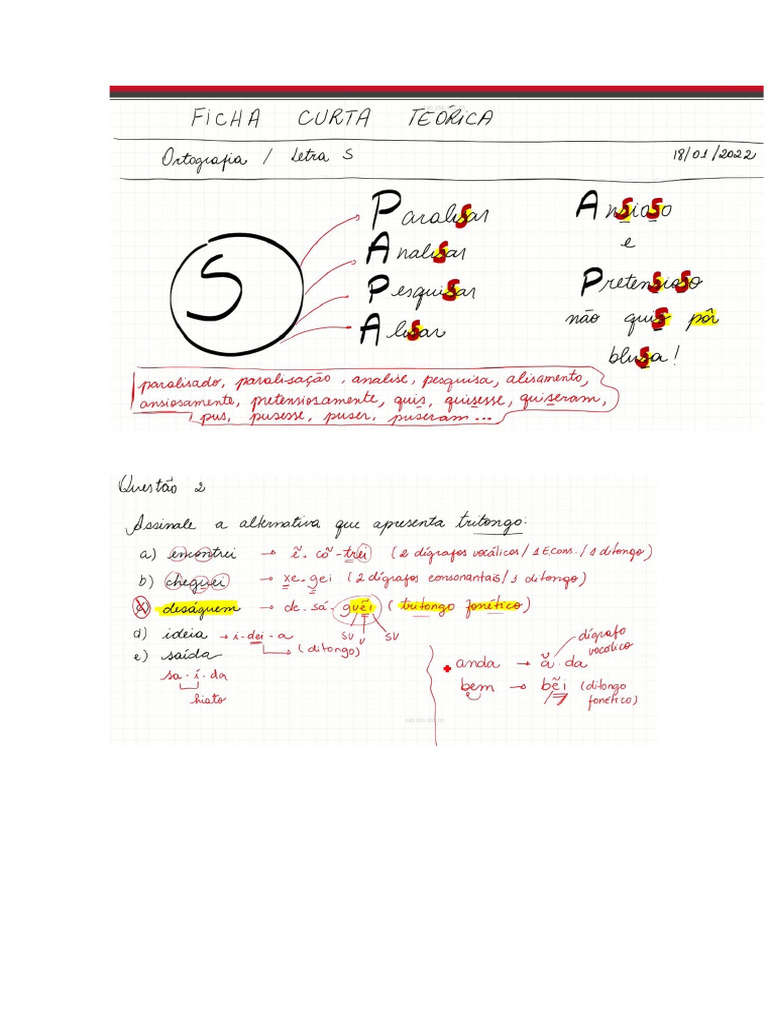 FICHA CURTA TEÓRICA
Ortografia / Letra S
18/01/2022
S
Paralisar
Analisar
Pesquisar
Alisar
Ansioso
e
Pretensioso
não quis pôr
blusa!
paralisado, paralisação, analise, pesquisa, alisamento,
ansiosamente, pretensiosamente, quis, quisesse, quiseram,
pus, pusesse, puser, puseram...
Questão 2
Assinale a alternativa que apresenta tritongo:
a) encontrei → ẽ-cõ-trei (2 dígrafos vocálicos/1 E.Cons./1 ditongo)
b) cheguei → xe-gei (2 dígrafos consonantais/1 ditongo)
c) deságuem → de-sá-guẽi (tritongo fonético)
SV V SV
d) ideia → i-dei-a
(ditongo)
e) saída
sa-í-da
hiato
dígrafo
vocálico
anda → ã-da
bem → bẽi (ditongo
fonético)